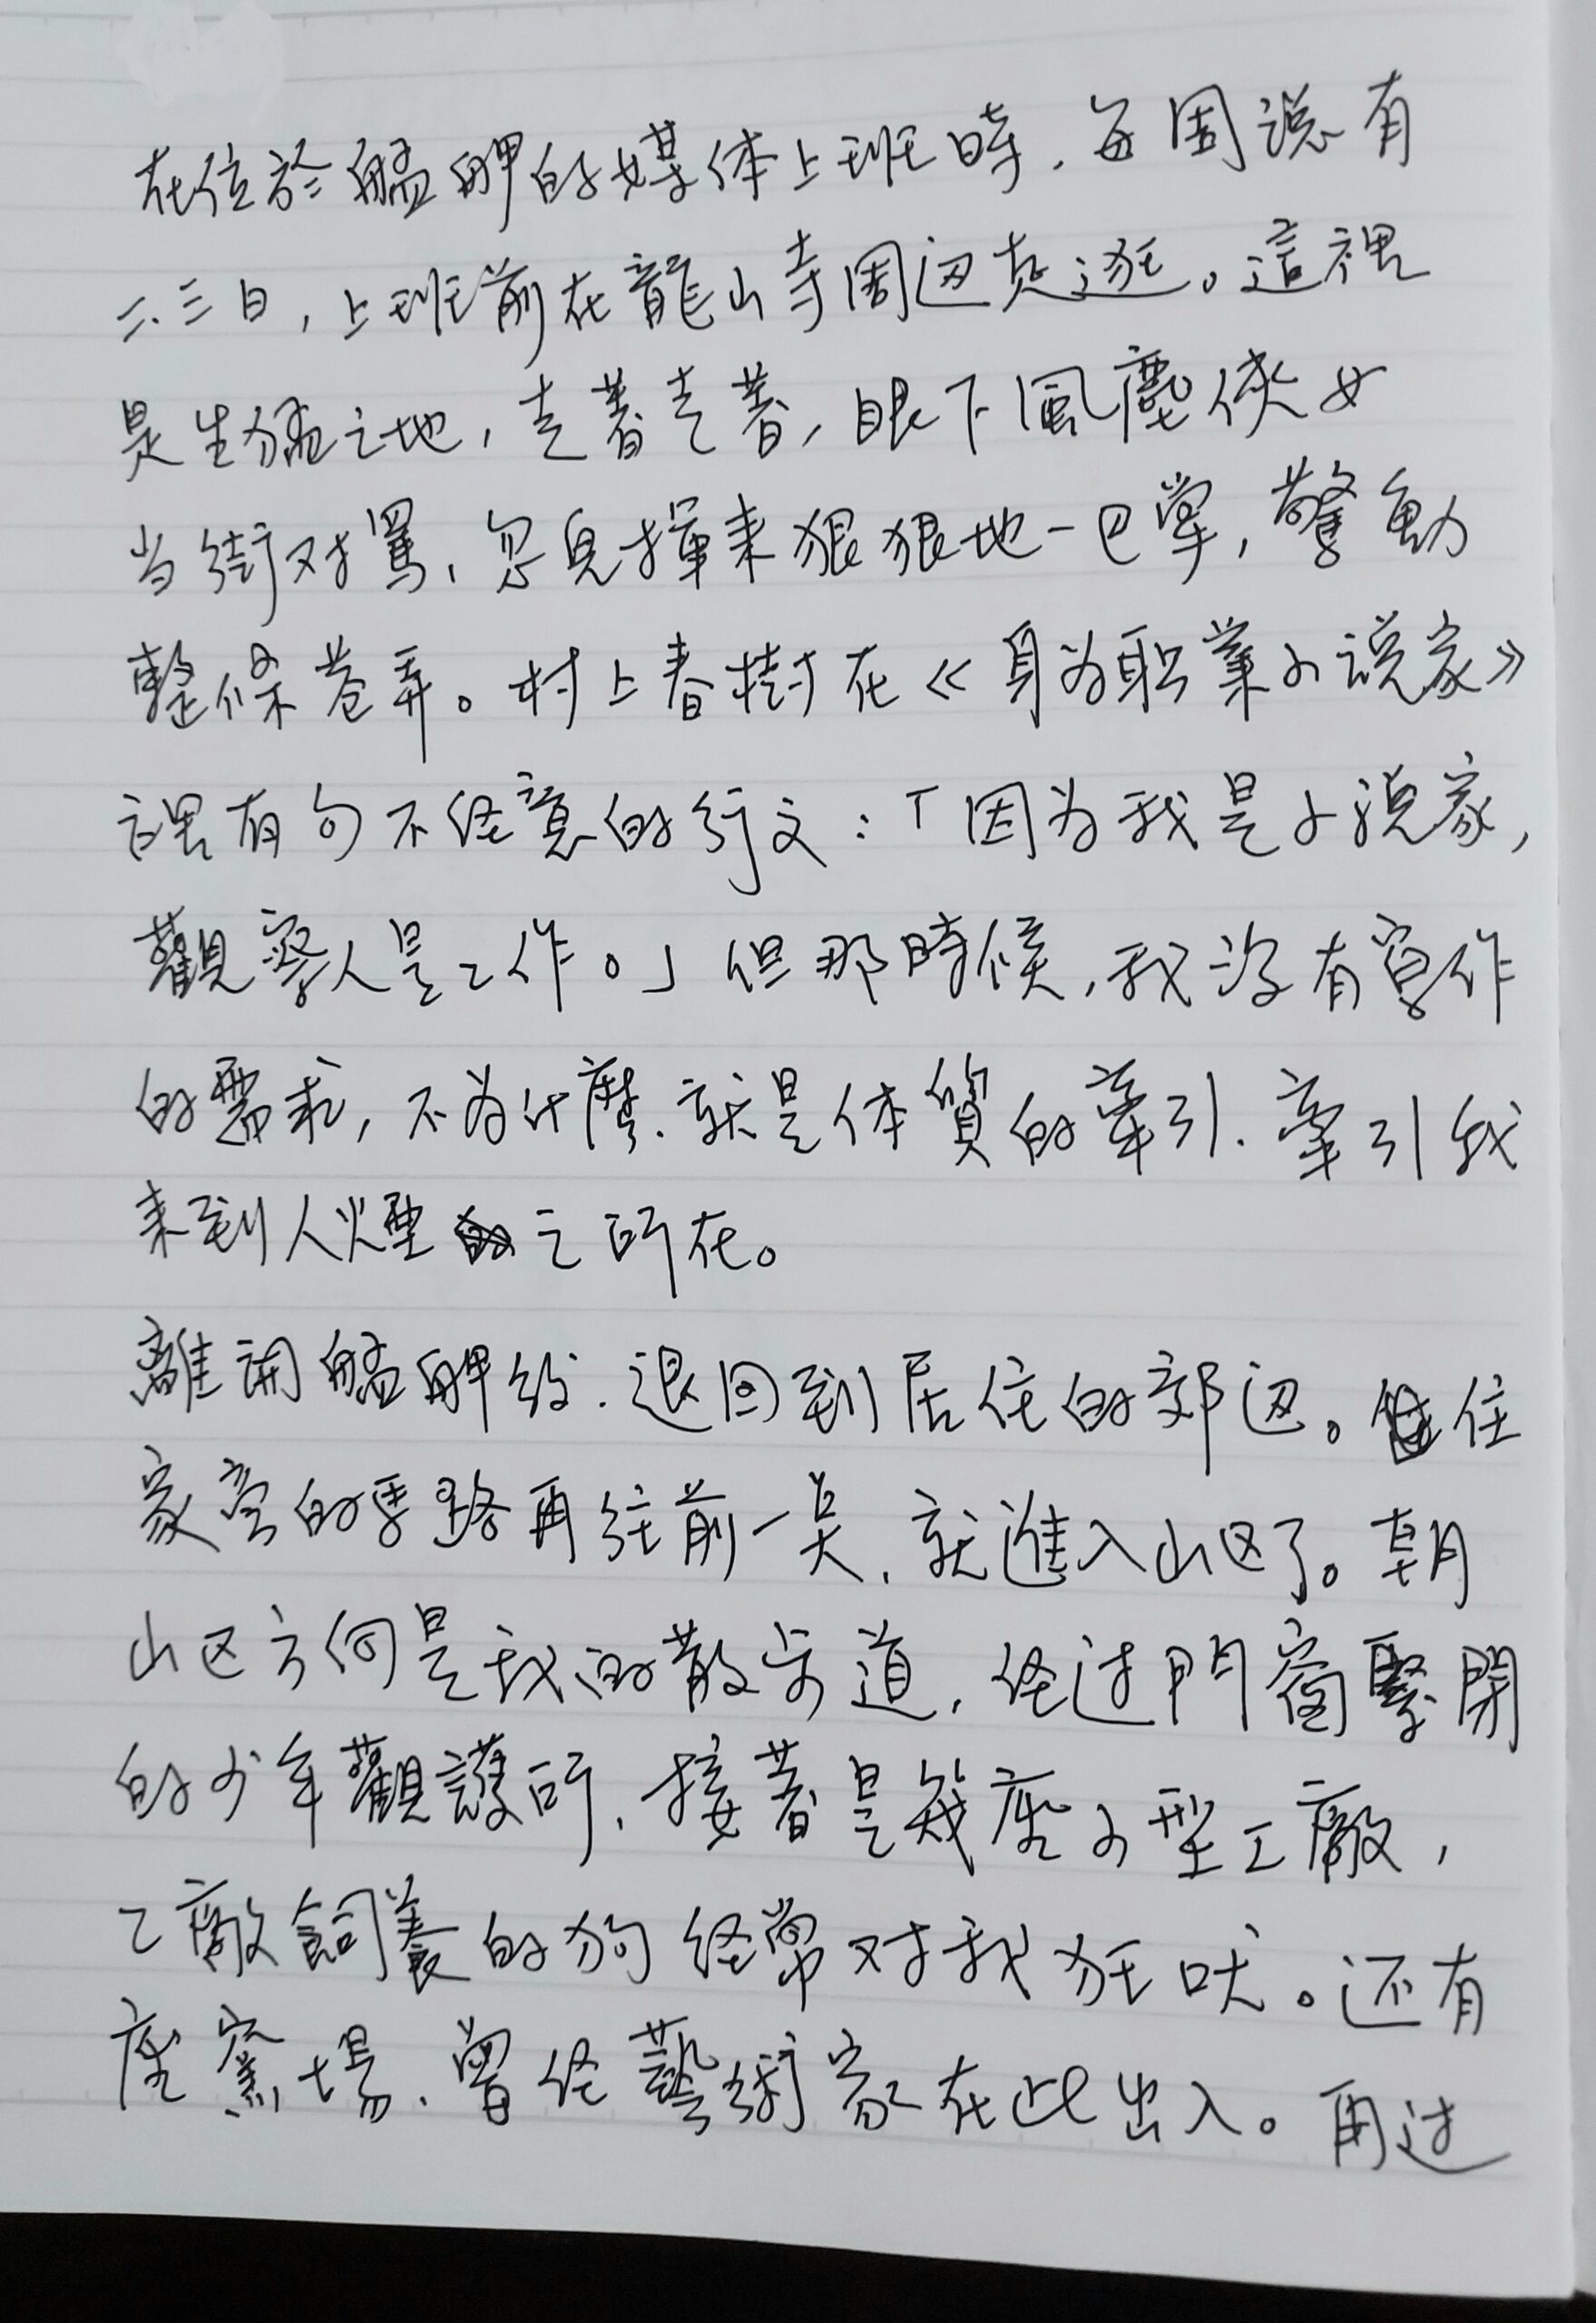 在位於艋舺的媒体上班時，每周总有
二、三日，上班前在龍山寺周边走逛。這裡
是生猛之地，走着走着，眼下風塵俠女
当街对罵，忽見揮来狠狠地一巴掌，驚動
整條巷弄。村上春樹在《身为职業小说家》
裡有句不经意的行文：「因为我是小说家，
觀察人是工作。」但那時候，我没有寫作
的需求，不为什麼，就是体質的牽引，牽引我
来到人煙之所在。
離開艋舺後，退回到居住的郊边。住
家旁的馬路再往前一点，就進入山区了。朝
山区方向是我的散步道，经过門窗緊閉
的少年觀護所，接着是幾座小型工廠，
工廠飼養的狗经常对我狂吠。还有
座窯場，曾经藝術家在此出入。再过